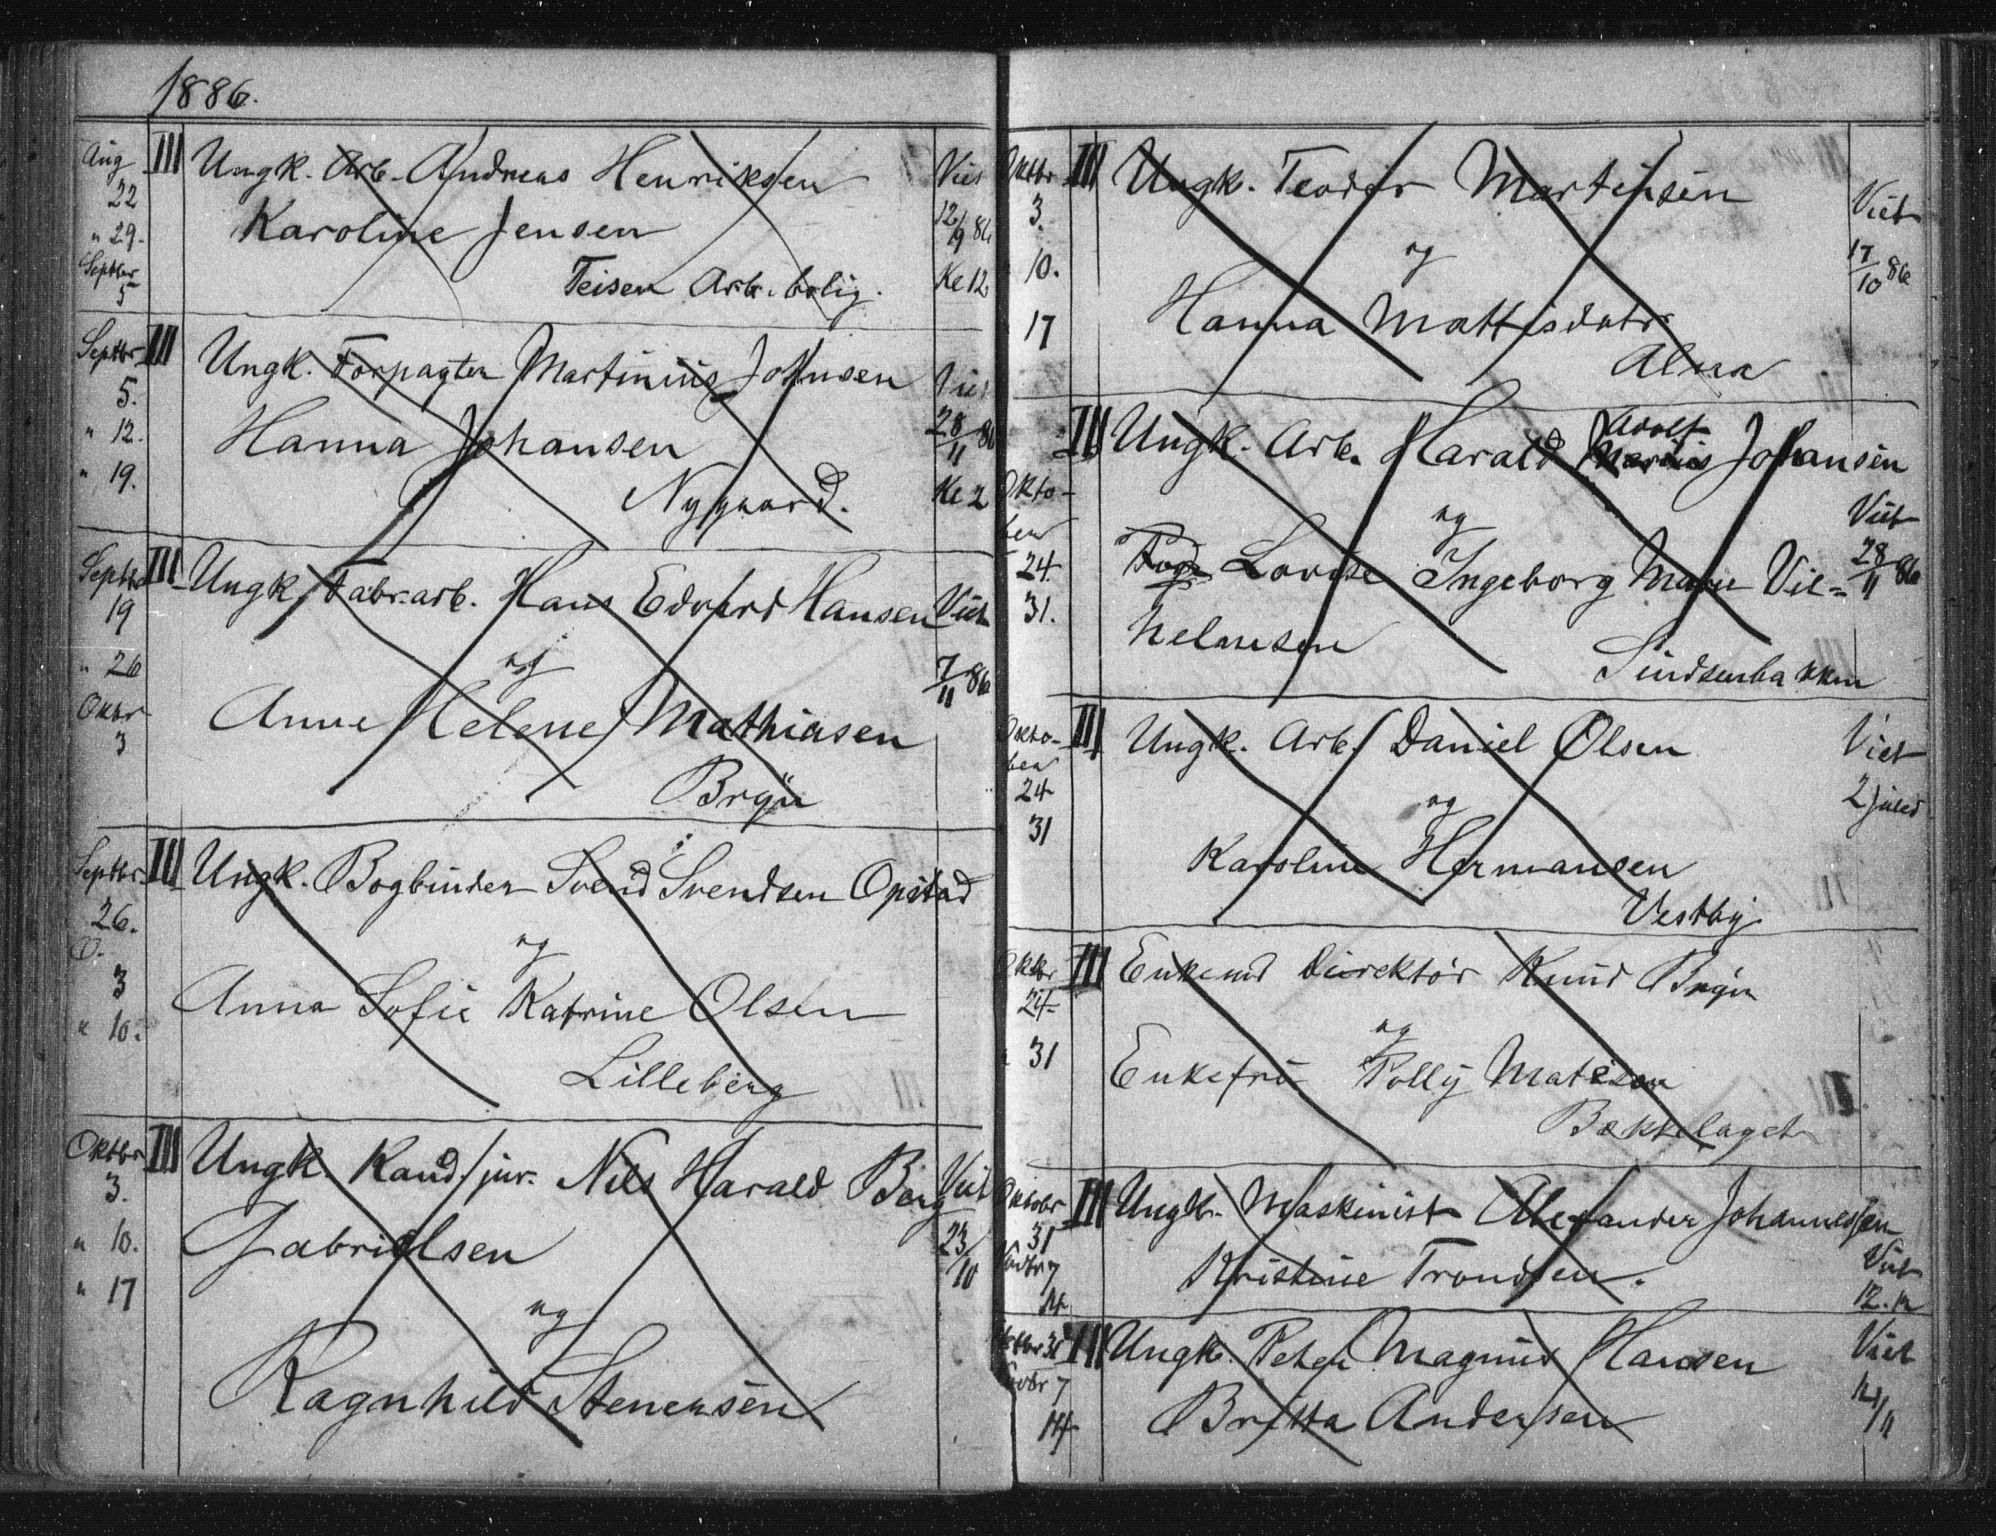 1886.
Aug III Ungk. Arb. Andreas Henriksen Viet
22
Karoline Jensen 12/9 86
" 29.
Septbr Teisen Arb. bolig. Kl 12
5
Septbr III Ungk. Forpagter Martinius Johnsen Viet
5.
" 12. Hanna Johansen 28/11 86
" 19. Nygaard. Kl 2
Septbr III Ungk. Fabr.arb. Hans Edvard Hansen Viet
19
" 26 og 7/11 86
Oktbr Anne Helene Mathiasen
3
Bryn
Septbr III Ungk. Bogbinder Svend Svendsen Opstad
26.
O. og
3 Anna Sofie Katrine Olsen
" 10.
Lilleberg
Oktbr III Ungk. Kand. jur. Nils Harald Berg Viet
3.
" 10. Gabrielsen 23/10
" 17
og
Ragnhild Stenersen
Oktbr III Ungk. Teodor Martinsen Viet
3.
10. og 17/10 86
17 Hanna Mattisdatr
Alna
III Ungk. Arb. Harald Adolf Marius Johansen
Okto- og Viet
ber
24. Lovise Ingeborg Marie Vil= 28/11 86
31. helmsen
Sindsenbakken
Okto- III Ungk. Arb. Daniel Olsen Viet
ber
24 og 2 juled
31 Karoline Hermansen
Vestby
Oktbr III Enkemd Direktør Knud Bryn
24
og
" 31 Enkefru Polly Matison
Bækkelaget
Oktobr III Ungk. Maskinist Alexander Johannessen
31
Novbr 7 Kristine Trondsen. Viet
14 12.
Oktbr 31 III Ungk. Peter Magnus Hansen Viet
Novbr 7
14 Britta Andersen 14/11